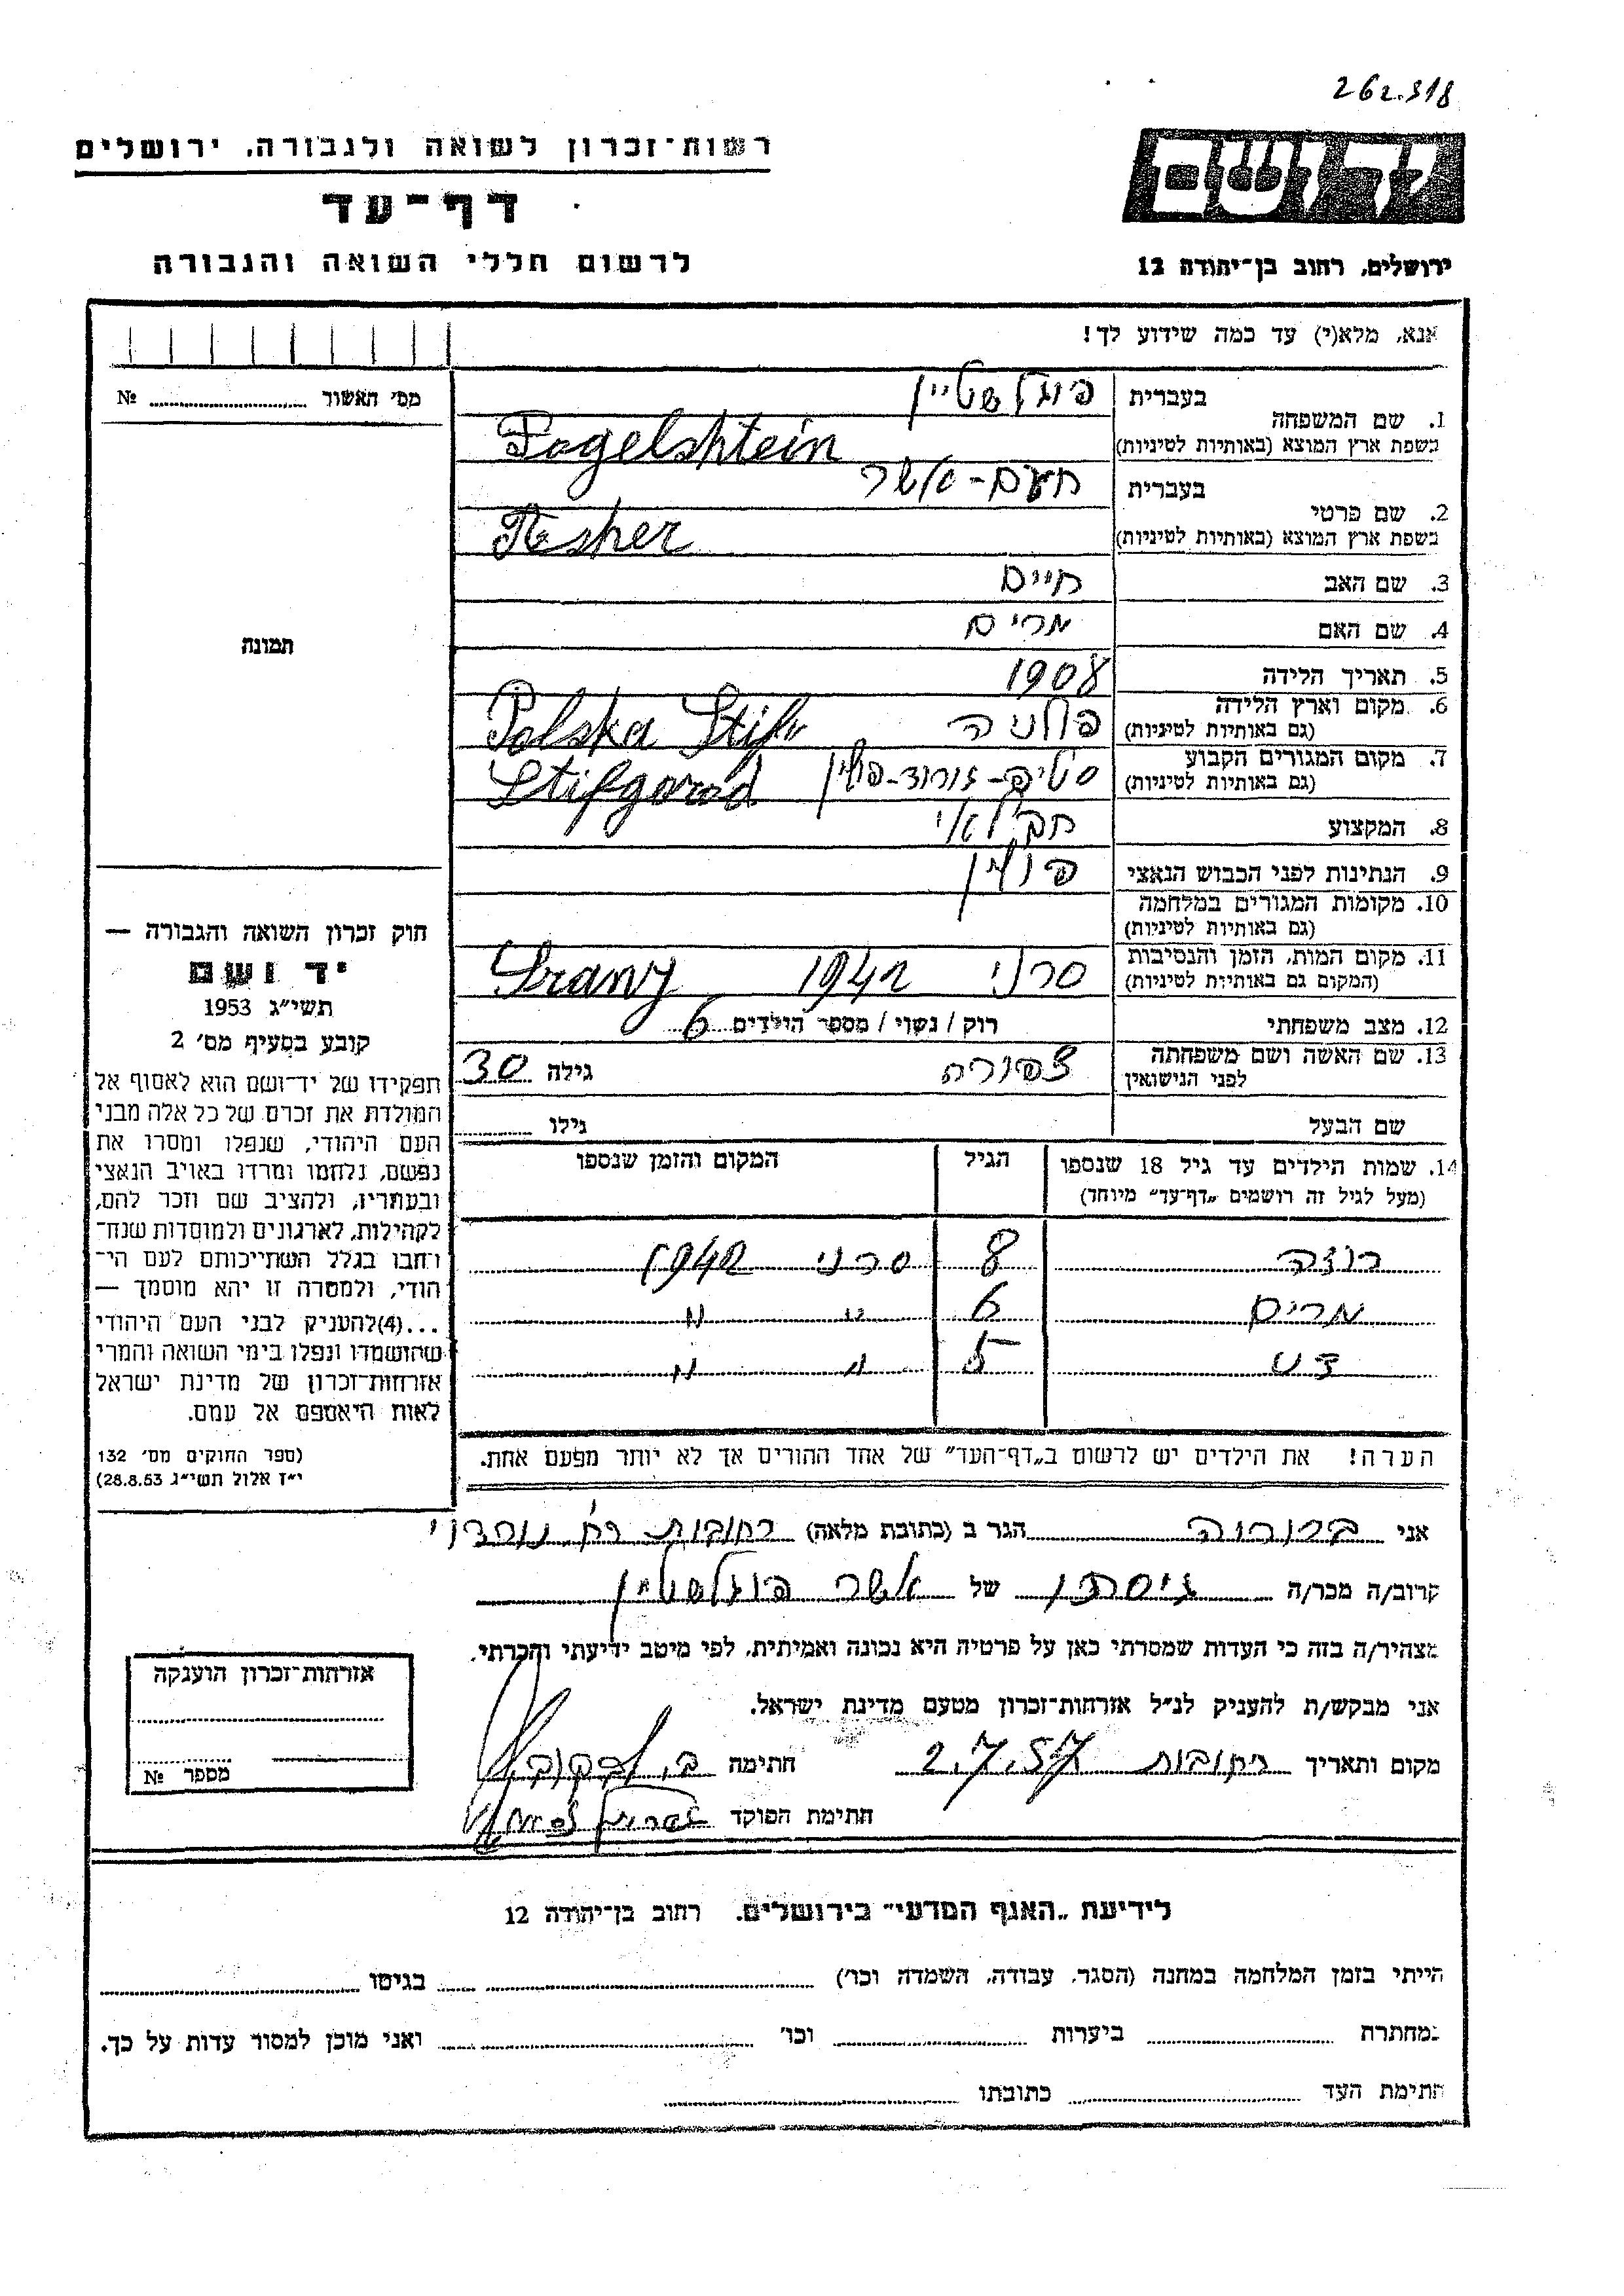 262.318
רשות־זכרון לשואה ולגבורה, ירושלים
דף־עד
לרשום חללי השואה והגבורה
יד ושם
ירושלים, רחוב בן־יהודה 12
אנא, מלא(י) עד כמה שידוע לך!
מס׳ האשור № 
1. שם המשפחה
בעברית פוגלשטיין
בשפת ארץ המוצא (באותיות לטיניות) Fogelshtein
2. שם פרטי
בעברית אשר
בשפת ארץ המוצא (באותיות לטיניות) Asher
3. שם האב חיים
4. שם האם מרים
5. תאריך הלידה 1908
6. מקום וארץ הלידה
(גם באותיות לטיניות) פולניה Polska
7. מקום המגורים הקבוע
(גם באותיות לטיניות) Stifgorod
8. המקצוע חקלאי
9. הנתינות לפני הכבוש הנאצי פולין
10. מקומות המגורים במלחמה
(גם באותיות לטיניות)
11. מקום המות, הזמן והנסיבות
(המקום גם באותיות לטיניות) סרני 1942 Srany
12. מצב משפחתי רוק / נשוי / מספר הילדים 6
13. שם האשה ושם משפחתה
לפני הנישואין צפורה גילה 30
שם הבעל גילו
14. שמות הילדים עד גיל 18 שנספו
(מעל לגיל זה רושמים „דף־עד״ מיוחד)
הגיל
המקום והזמן שנספו
רוזה 8 סרני 1942
מרים 6 " "
5 " "
הערה! את הילדים יש לרשום ב„דף־העד״ של אחד ההורים אך לא יותר מפעם אחת.
תמונה
חוק זכרון השואה והגבורה —
יד ושם
תשי״ג 1953
קובע בסעיף מס׳ 2
תפקידו של יד־ושם הוא לאסוף אל
המולדת את זכרם של כל אלה מבני
העם היהודי, שנפלו ומסרו את
נפשם, נלחמו ומרדו באויב הנאצי
ובעוזריו, ולהציב שם וזכר להם,
לקהילות, לארגונים ולמוסדות שנח־
רבו בגלל השתייכותם לעם הי־
הודי, ולמטרה זו יהא מוסמך —
...(4)להעניק לבני העם היהודי
שהושמדו ונפלו בימי השואה והמרי
אזרחות־זכרון של מדינת ישראל
לאות היאספם אל עמם.
(ספר החוקים מס׳ 132
י״ז אלול תשי״ג 28.8.53)
אני ברורה הגר ב (כתובת מלאה) רחובות
קרוב/ה מכר/ה גיסתו של אשר פוגלשטיין
מצהיר/ה בזה כי העדות שמסרתי כאן על פרטיה היא נכונה ואמיתית, לפי מיטב ידיעתי והכרתי.
אני מבקש/ת להעניק לנ״ל אזרחות־זכרון מטעם מדינת ישראל.
מקום ותאריך רחובות 2.7.57 חתימה
חתימת הפוקד
אזרחות־זכרון הוענקה
מספר №
לידיעת „האגף המדעי״ בירושלים. רחוב בן־יהודה 12
הייתי בזמן המלחמה במחנה (הסגר, עבודה, השמדה וכו׳) בגיטו
במחתרת ביערות וכו׳ ואני מוכן למסור עדות על כך.
חתימת העד כתובתו